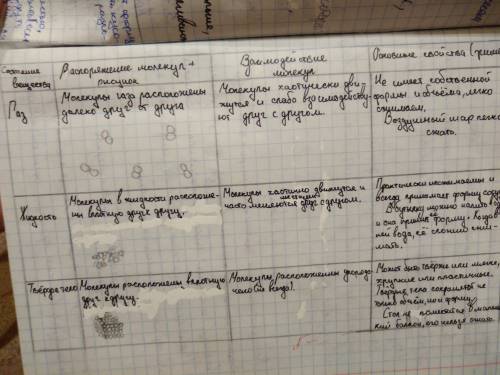 Состояние вещества
Расположение молекул +
рисунок
Взаимодействие
молекул
Основные свойства
Газ
Молекулы газа расположены
далеко друг от друга
Молекулы хаотически дви-
жутся и слабо взаимодейству-
ют друг с другом.
Не имеет собственной
формы и объёма, легко
сжимаем.
Воздушный шар легко
сжать.
Жидкость
Молекулы в жидкости расположе-
ны вплотную друг к другу.
Молекулы хаотично движутся и
часто меняются местами друг с другом.
Практически несжимаемы и
всегда принимает форму
и она примет её форму. Когда в
ней вода, её сложно сжи-
мать.
Твёрдое тело
Молекулы расположены вплотную
друг к другу.
Молекулы расположены упорядо-
чело (не всегда).
Может быть твёрже или мягче,
хрупкие или пластичные.
Твёрдое тело сохраняет не
только объём, но и форму.
Стол не поместится в малень-
кий баллон, его нельзя сжать.